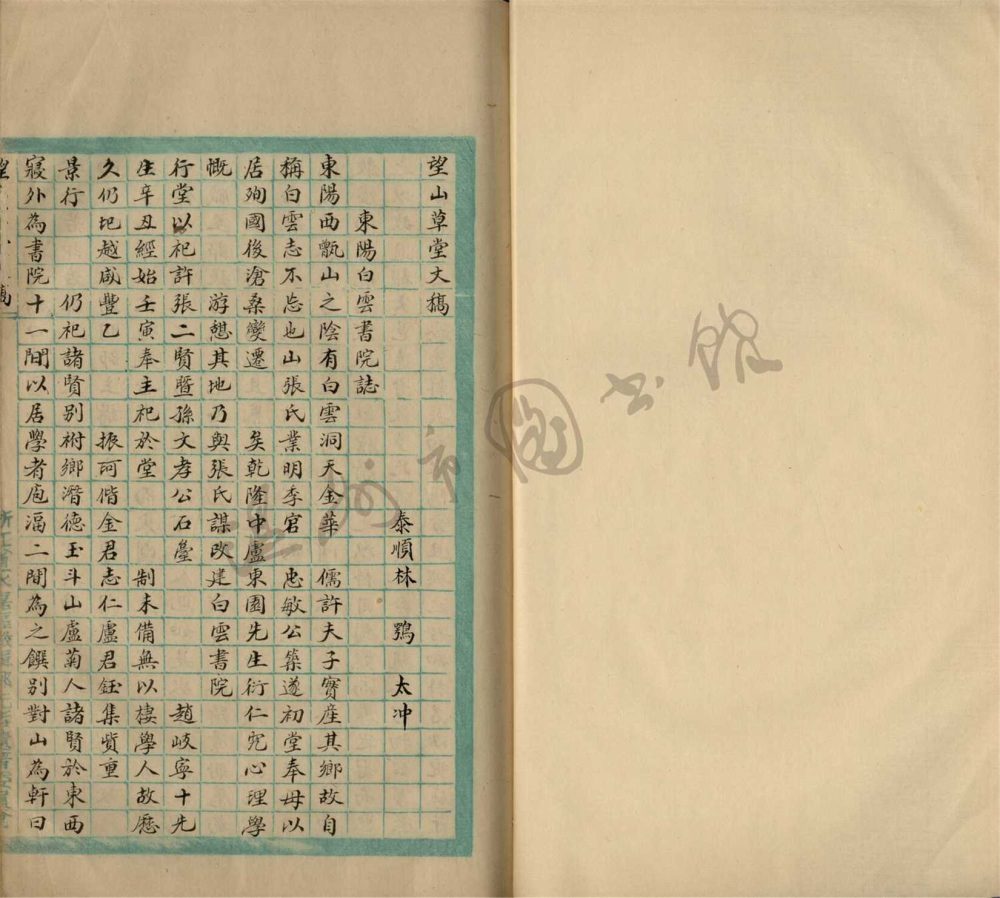 望山草堂文稿
泰順林 鶚 太冲
東陽白雲書院誌
東陽西甑山之陰有白雲洞天金華 儒許夫子實產其鄉故自
稱白雲志不忘也山張氏業明季宮 忠敏公築遂初堂奉母以
居殉國後滄桑變遷 矣乾隆中盧東園先生衍仁究心理學
慨 游憩其地乃與張氏謀改建白雲書院
行堂以祀許張二賢暨孫文孝公石臺 趙岐寧十先
生辛丑經始壬寅奉主祀於堂 制未備無以棲學人故歷
久仍圯越咸豐乙 振珂偕金君志仁盧君鈺集貲重
景行 仍祀諸賢別祔鄉潛德玉斗山盧菊人諸賢於東西
寢外為書院十一間以居學者庖湢二間為之饌別對山為軒曰
市圖書館